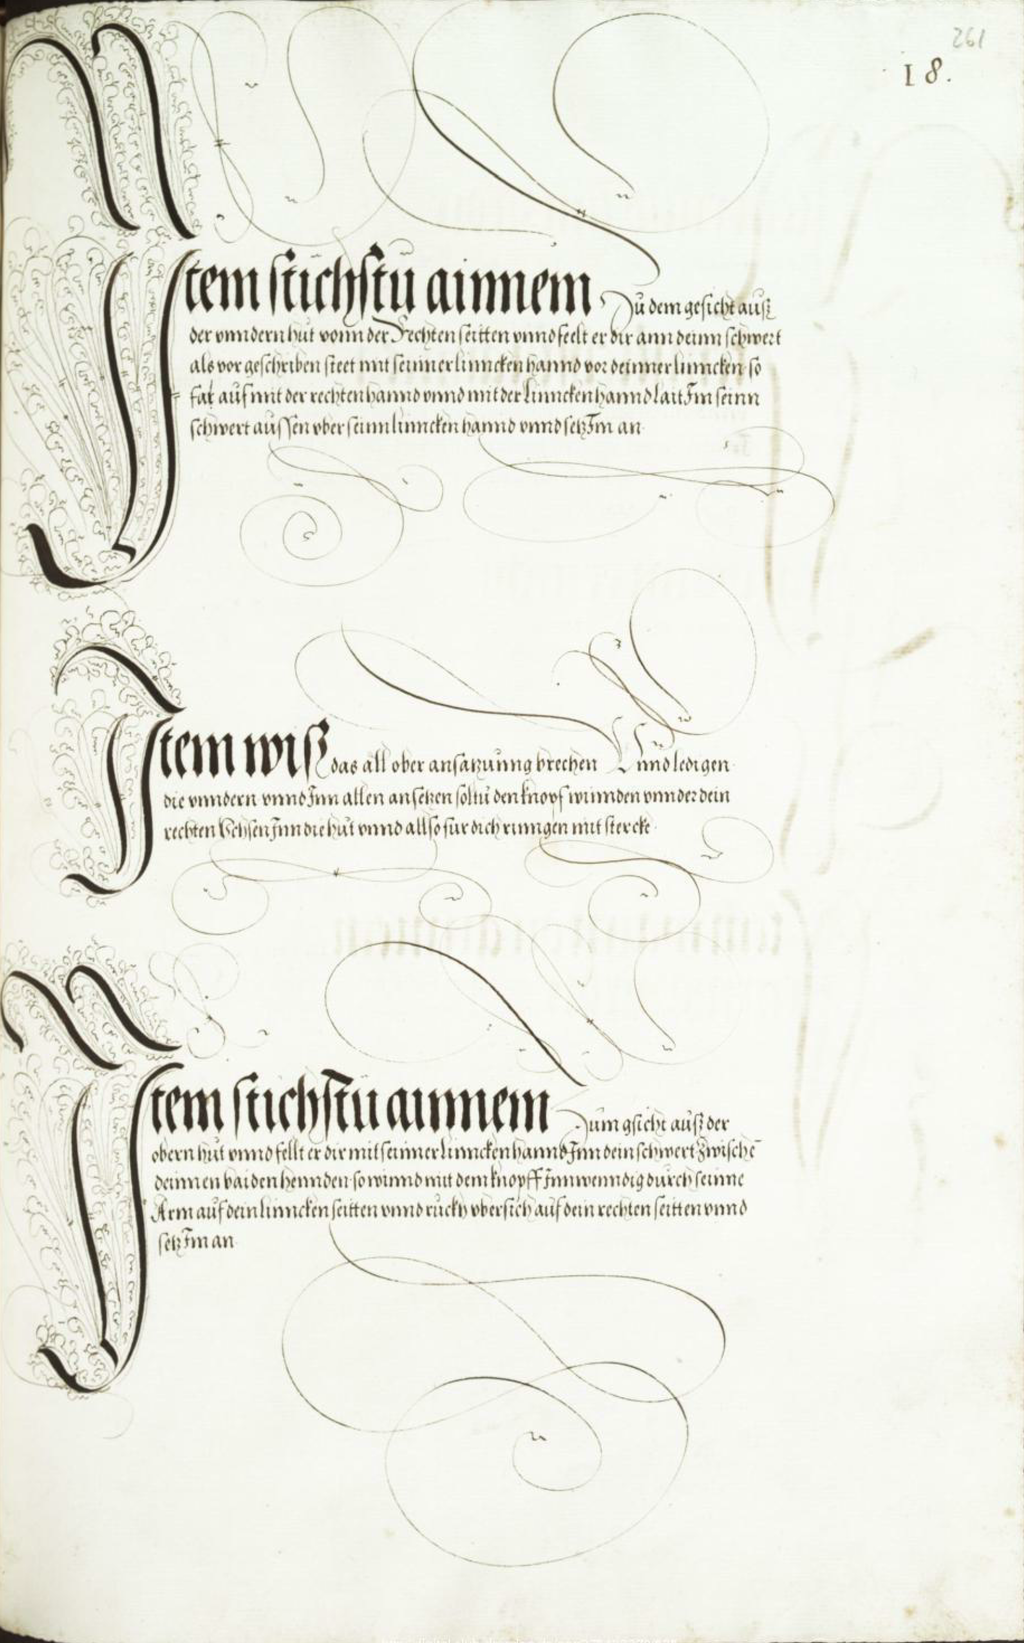 261
18.
Item stichstu ainnem Zu dem gesicht auß
der vnndern hůt vonn der Rechten seitten vnnd feelt er dir ann deinn schwert
als vor geschriben steet mit seinner linncken hannd vor deinner linncken so
far auf mit der rechten hannd vnnd mit der linncken hannd lait Im seinn
schwert aussen vber seinn linncken hannd vnnd setz Im an
Item wiß das all ober ansatzunng brechen Vnnd ledigen
die vnndern vnnd Inn allen ansetzen soltu den knopf winnden vnnder dein
rechten Vchsen Inn die hůt vnnd allso für dich rinngen mit stercke
Item stichstu ainnem Zum gsicht auß der
obern hůt vnnd fellt er dir mit seinner linncken hannd Inn dein schwert Zwische
deinnen baiden hennden so winnd mit dem knopff Innwenndig durch seinne
Arm auf dein linncken seitten vnnd ruckh vbersich auf dein rechten seitten vnnd
setz Im an